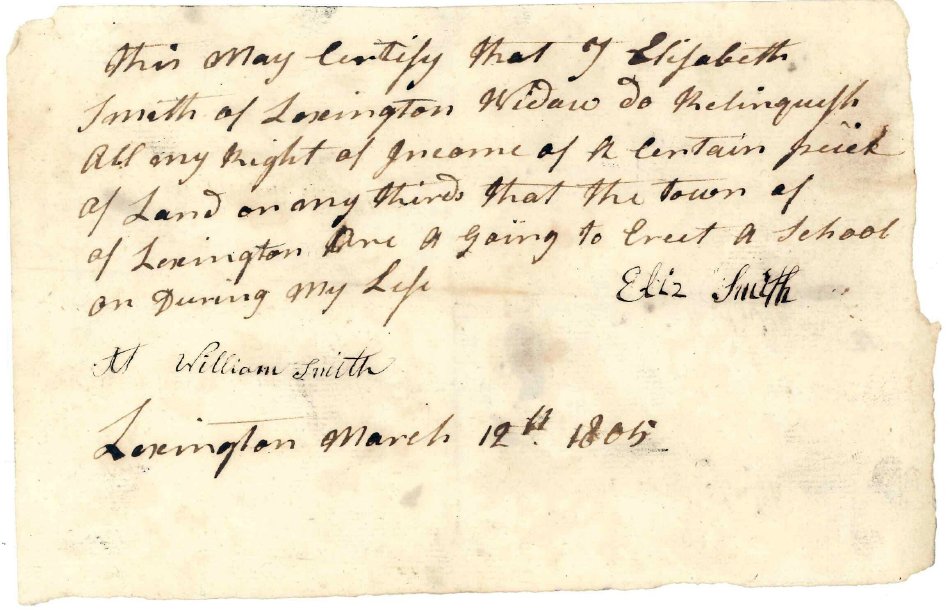 this May Certify that I Elisabeth
Smith of Lexington Widaw do Relinquish
All my Right of Income of A Certain peick
of Land on my thirds that the town of
of Lexington Are A Going to Erect A School
on During My Life Eliz Smith
At William Smith
Lexington March 12th. 1805